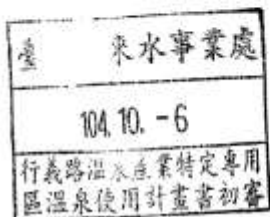 臺 來水事業處
104.10.-6
行義路溫水產業特定專用
區溫泉使用計畫書初審